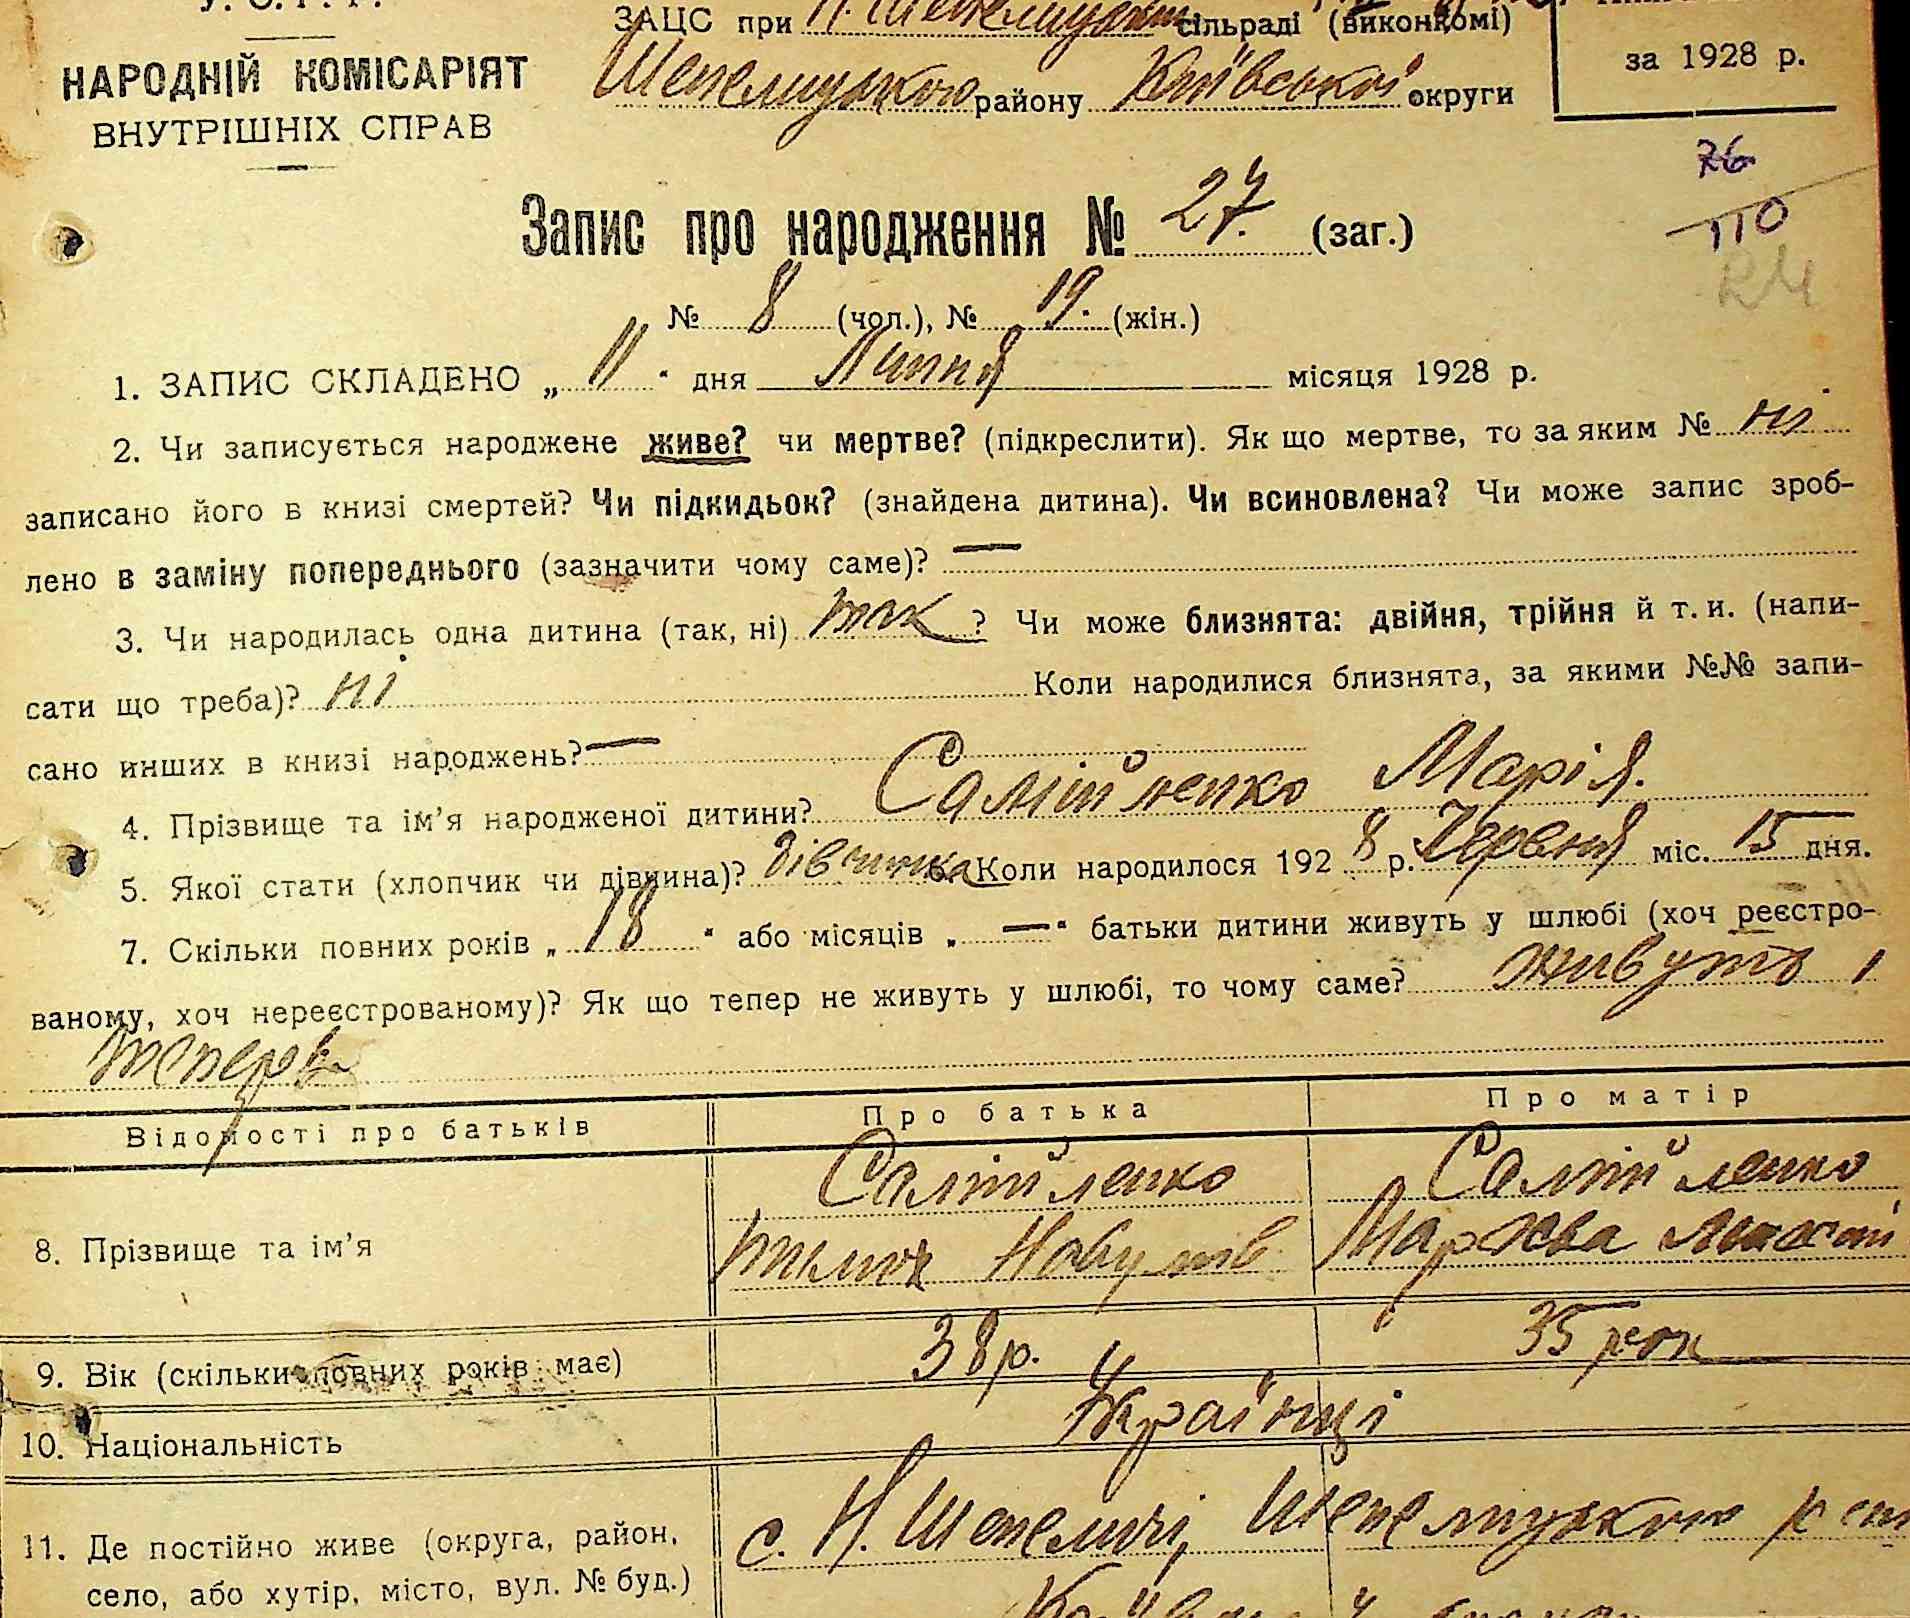 У. С. Р. Р.
НАРОДНІЙ КОМІСАРІЯТ
ВНУТРІШНІХ СПРАВ
ЗАЦС при Н. Шепелицькій сільраді (виконкомі)
Шепелицького району Київської округи
за 1928 р.
76
110
Запис про народження № 27. (заг.)
№ 8 (чол.), № 19. (жін.)
1. ЗАПИС СКЛАДЕНО „ 11 " дня Липня місяця 1928 р.
2. Чи записується народжене живе? чи мертве? (підкреслити). Як що мертве, то за яким № ні
записано його в книзі смертей? Чи підкидьок? (знайдена дитина). Чи всиновлена? Чи може запис зроб-
лено в заміну попереднього (зазначити чому саме)? —
3. Чи народилась одна дитина (так, ні) так ? Чи може близнята: двійня, трійня й т. и. (напи-
сати що треба)? ні Коли народилися близнята, за якими №№ запи-
сано инших в книзі народжень? —
4. Прізвище та ім'я народженої дитини? Самійленко Марія.
5. Якої стати (хлопчик чи дівчина)? дівчинка 6. Коли народилося 192 8 р. Червня міс. 15 дня.
7. Скільки повних років „ 18 " або місяців „ — " батьки дитини живуть у шлюбі (хоч реєстро-
ваному, хоч нереєстрованому)? Як що тепер не живуть у шлюбі, то чому саме? живуть і
тепер
Відомості про батьків Про батька Про матір
8. Прізвище та ім'я Самійленко Самійленко
9. Вік (скільки повних років має) 38 р. 35 рок
10. Національність Українці
11. Де постійно живе (округа, район, с. Н. Шепеличі, Шепелицького
село, або хутір, місто, вул. № буд.)